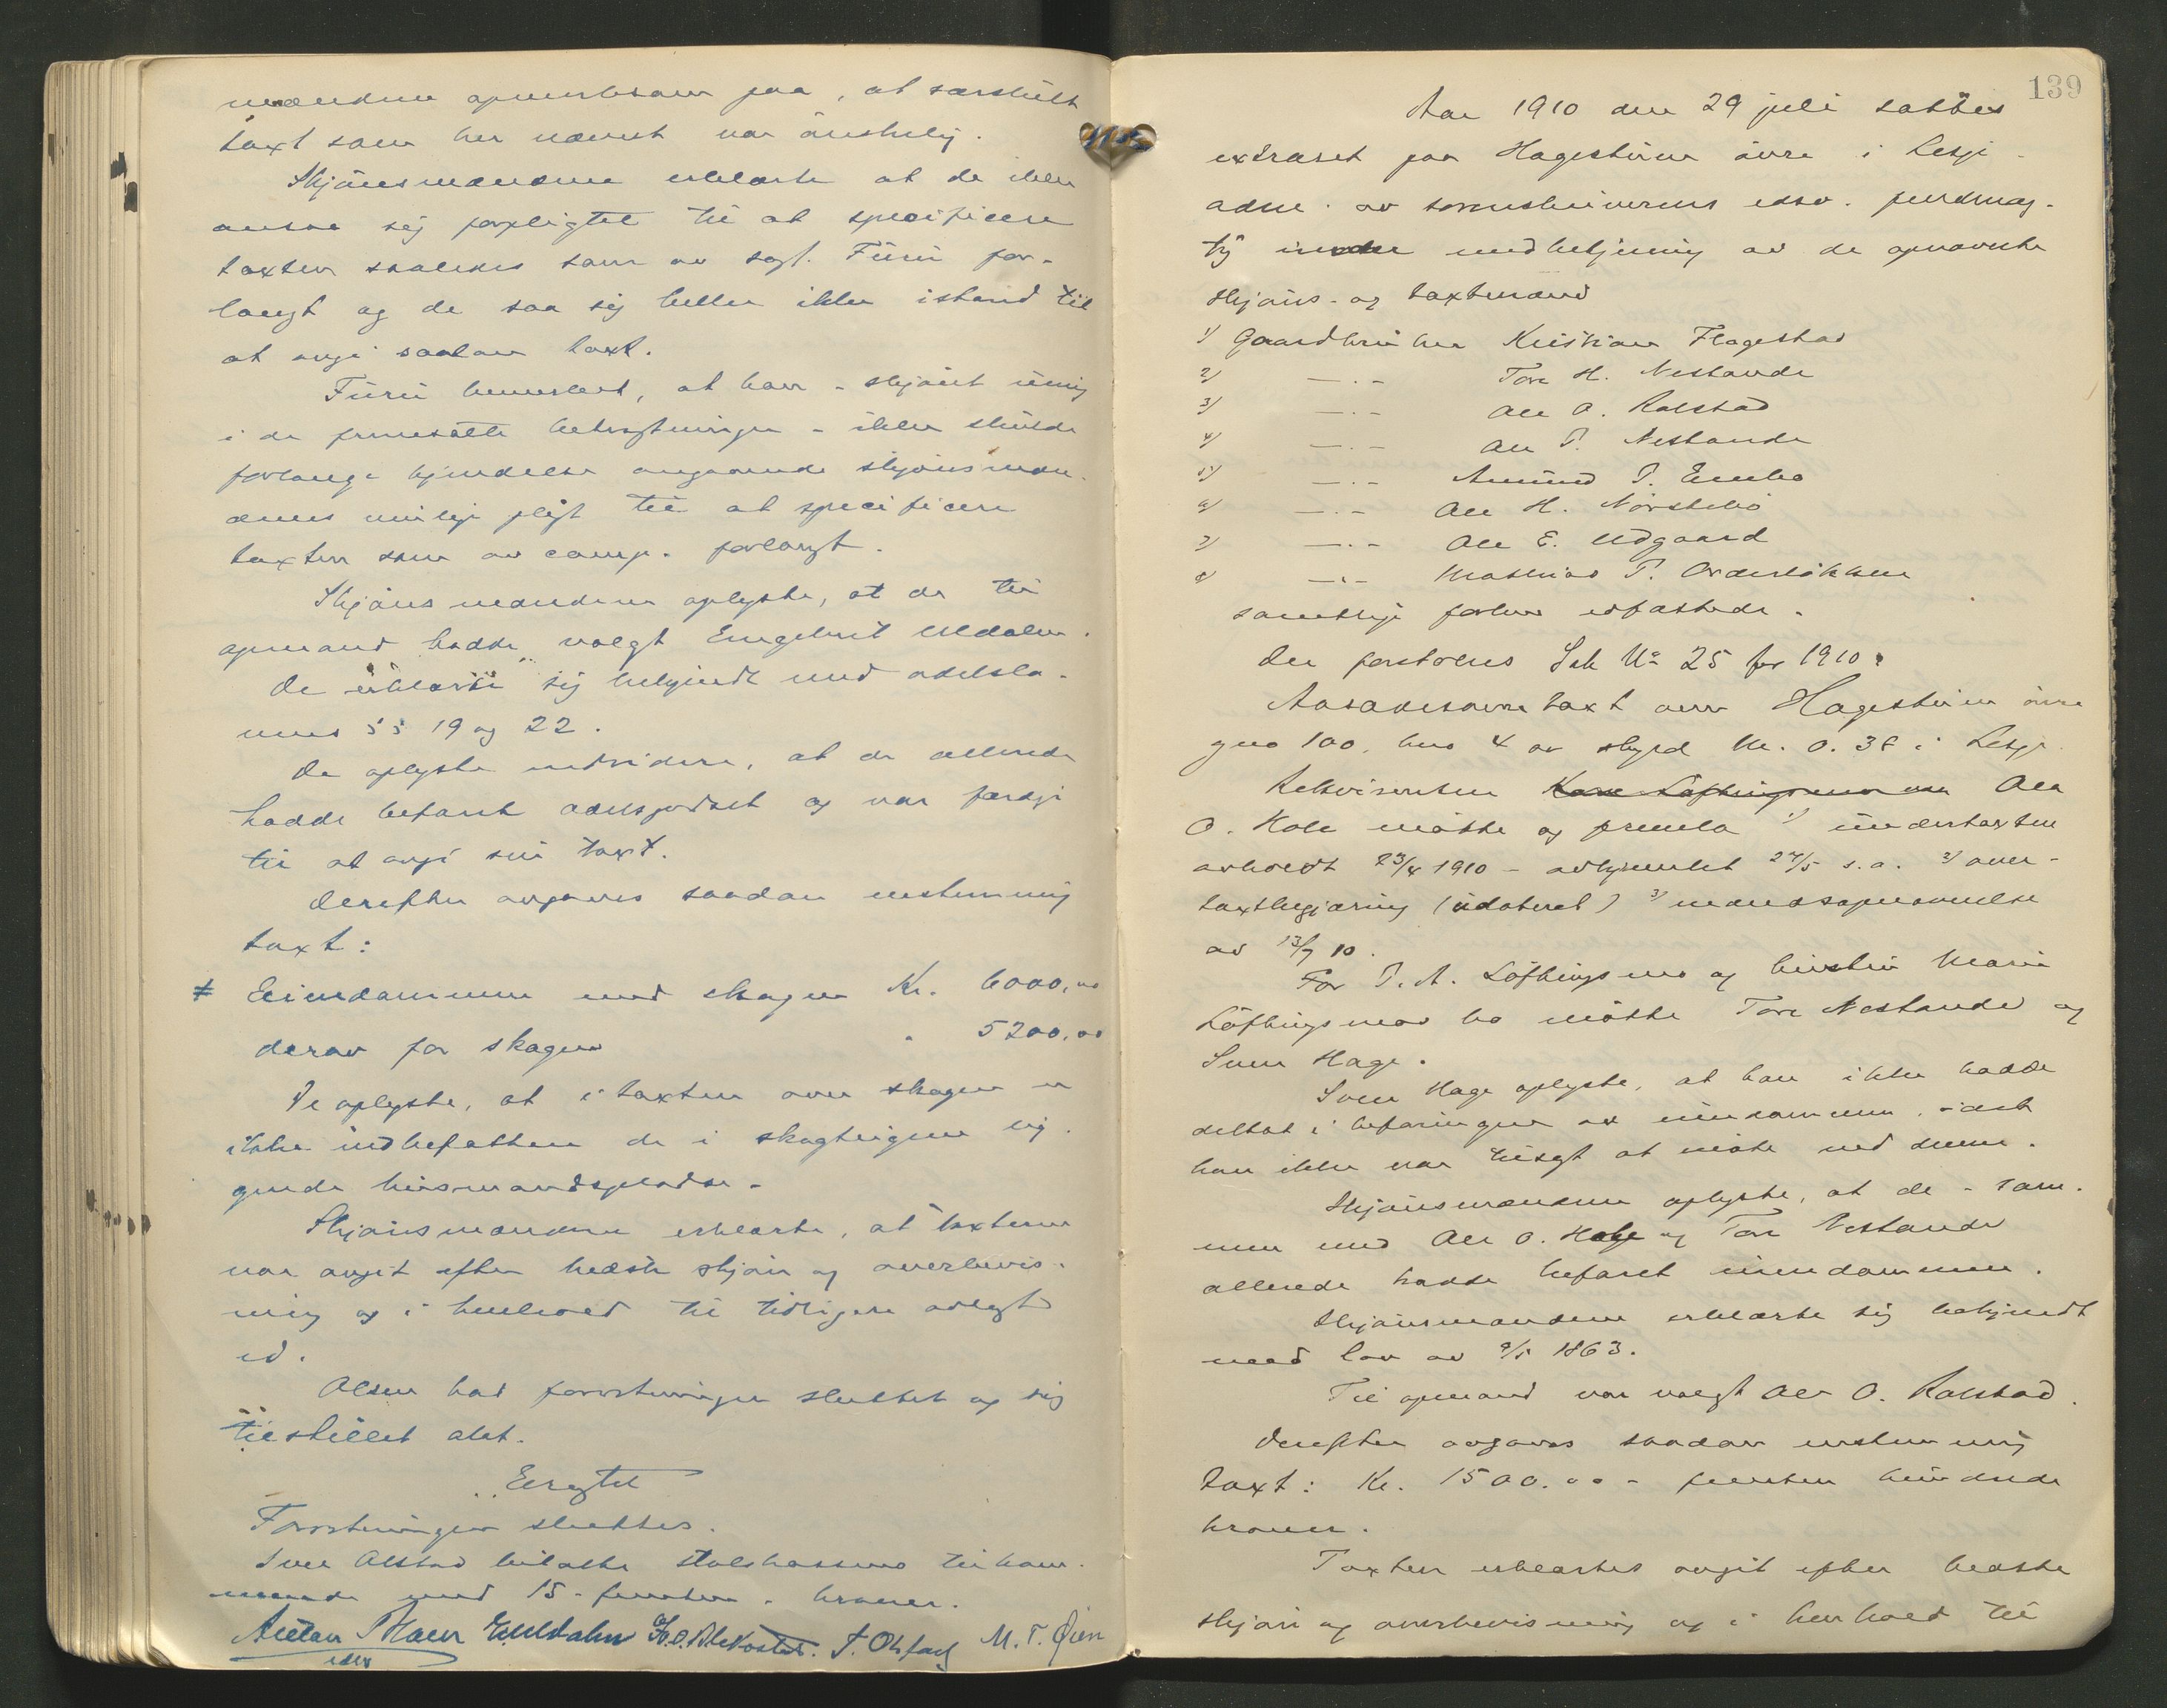 mændene opmerksom paa, at særskilt
taxt som her nævnt var ønskelig.
Skjønsmændene erklærte at de ikke
ansaa sig forpligtet til at specificere
taxten saaledes som av sagf. Furu for-
langt og de saa sig heller ikke istand til
at avgi saadan taxt.
Furu bemerket, at han - skjønt uenig
i de fremsatte betragtninger - ikke skulde
forlange kjendelse angaaende skjønsmæn-
denes mulige pligt til at specificere
taxten som av comp. forlangt.
Skjønsmændene oplyste, at de til
opmand hadde valgt Engebret Uldalen.
De erklærte sig bekjendt med odelslo-
vens §§ 19 og 22.
De oplyste endvidere, at de allerede
hadde befaret odelsgodset og var færdige
til at avgi sin taxt.
Derefter avgaves saadan enstemmig
taxt:
≠ Eiendommen med skogen Kr. 6000,00
derav for skogen " 5200,00
De oplyste, at i taxten over skogen er
ikke indbefattet de i skogteigene lig-
gende husmandspladse.
Skjønsmændene erklærte, at taxterne
var avgit efter bedste skjøn og overbevis-
ning og i henhold til tidligere avlagt
ed.
Olsen bad forretningen sluttet og sig
tilstillet akt.
Eragtet
Forretningen sluttes.
Iver Alstad betalte stolskasserne tilkom-
mende med 15 - femten - kroner.
Moen EUldalen T. M. T. Øien
139
Aar 1910 den 29 juli sattes
extraret paa Hagestuen øvre i Lesje
adm. av sorenskriverens edsv. fuldmæg-
tig under medbetjening av de opnævnte
skjøns- og taxtmænd
1) Gaardbruker Kristian Flagestad
2) —.- Tore H. Nestande
3) —.- Ole O. Rolstad
4) —.- Ole T. Nestande
5) —.- Amund P. Enebo
6) —.- Ole H. Nørstebø
7) —.- Ole E. Udgaard
8) —.- Mathias P.
samtlige forhen edfæstede.
Der foretoges Sak No 25 for 1910:
Aasædesovertaxt over Hagestuen øvre
gno 100, bno 4 av skyld Mk. 0.38 i Lesje.
Rekvirenten Ole
O. Hole møtte og fremla 1) undertaxten
avholdt 23/4 1910 - avhjemlet 24/5 s.a. 2) over-
taxtbegjæring (udateret) 3) mandsopnævnelse
av 13/7 10.
For P. A. Løftingsmo og hustru Marie
Løftingsmo bo møtte Tore Nestande og
Sven Hage.
Sven Hage oplyste, at han ikke hadde
deltat i befaringen av eiendommen, idet
han ikke var tilsagt at møte ved denne.
Skjønsmændene oplyste, at de - sam-
men med Ole O. Hole og Tore Nestande
allerede hadde befaret eiendommen.
Skjønsmændene erklærte sig bekjendt
med lov av 9/5 1863.
Til opmand var valgt Ole O. Rolstad.
Derefter avgaves saadan enstemmig
taxt: Kr. 1500.00 - femten hundrede
kroner.
Taxten erklærtes avgit efter bedste
skjøn og overbevisning og i henhold til